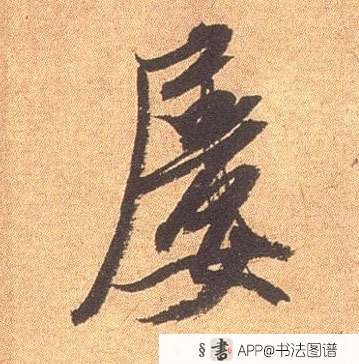 屡
§ 書 APP@书法图谱